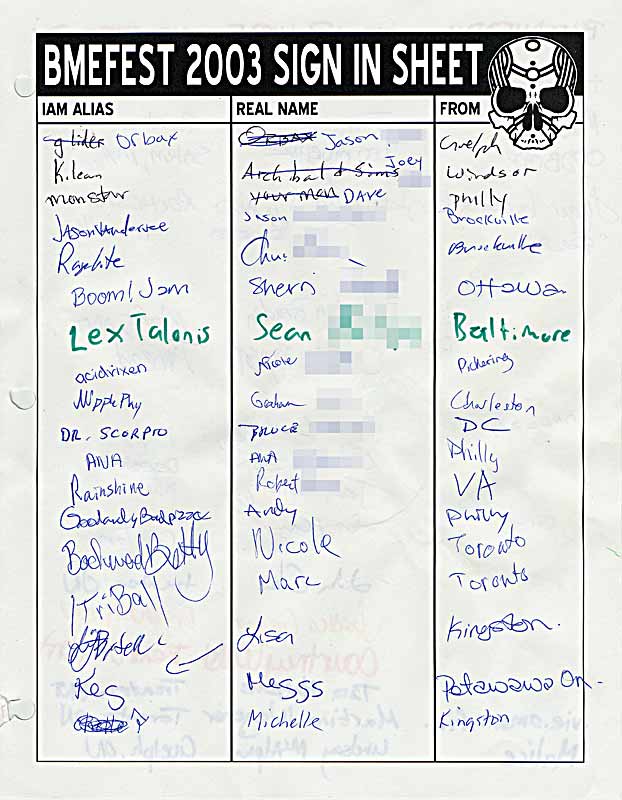 BMEFEST 2003 SIGN IN SHEET
IAM ALIAS REAL NAME FROM
glider Orbax Orbax Jason Guelph
Kilean Archibald Sims Joey Windsor
monster your man DAVE philly
JasonVandervee Jason Brockville
Chris Brockville
Boom! Jam Sherri Ottawa
Lex Talonis Sean Baltimore
acidvixen Nicole Pickering
Graham Charleston
DR. SCORPIO BRUCE DC
ANA ANA Philly
Rainshine Robert VA
Andy philly
BackwoodBetty Nicole Toronto
1TriBall Marc Toronto
Lisa Kingston.
Keg Meggs Petawawa On-
Michelle Kingston